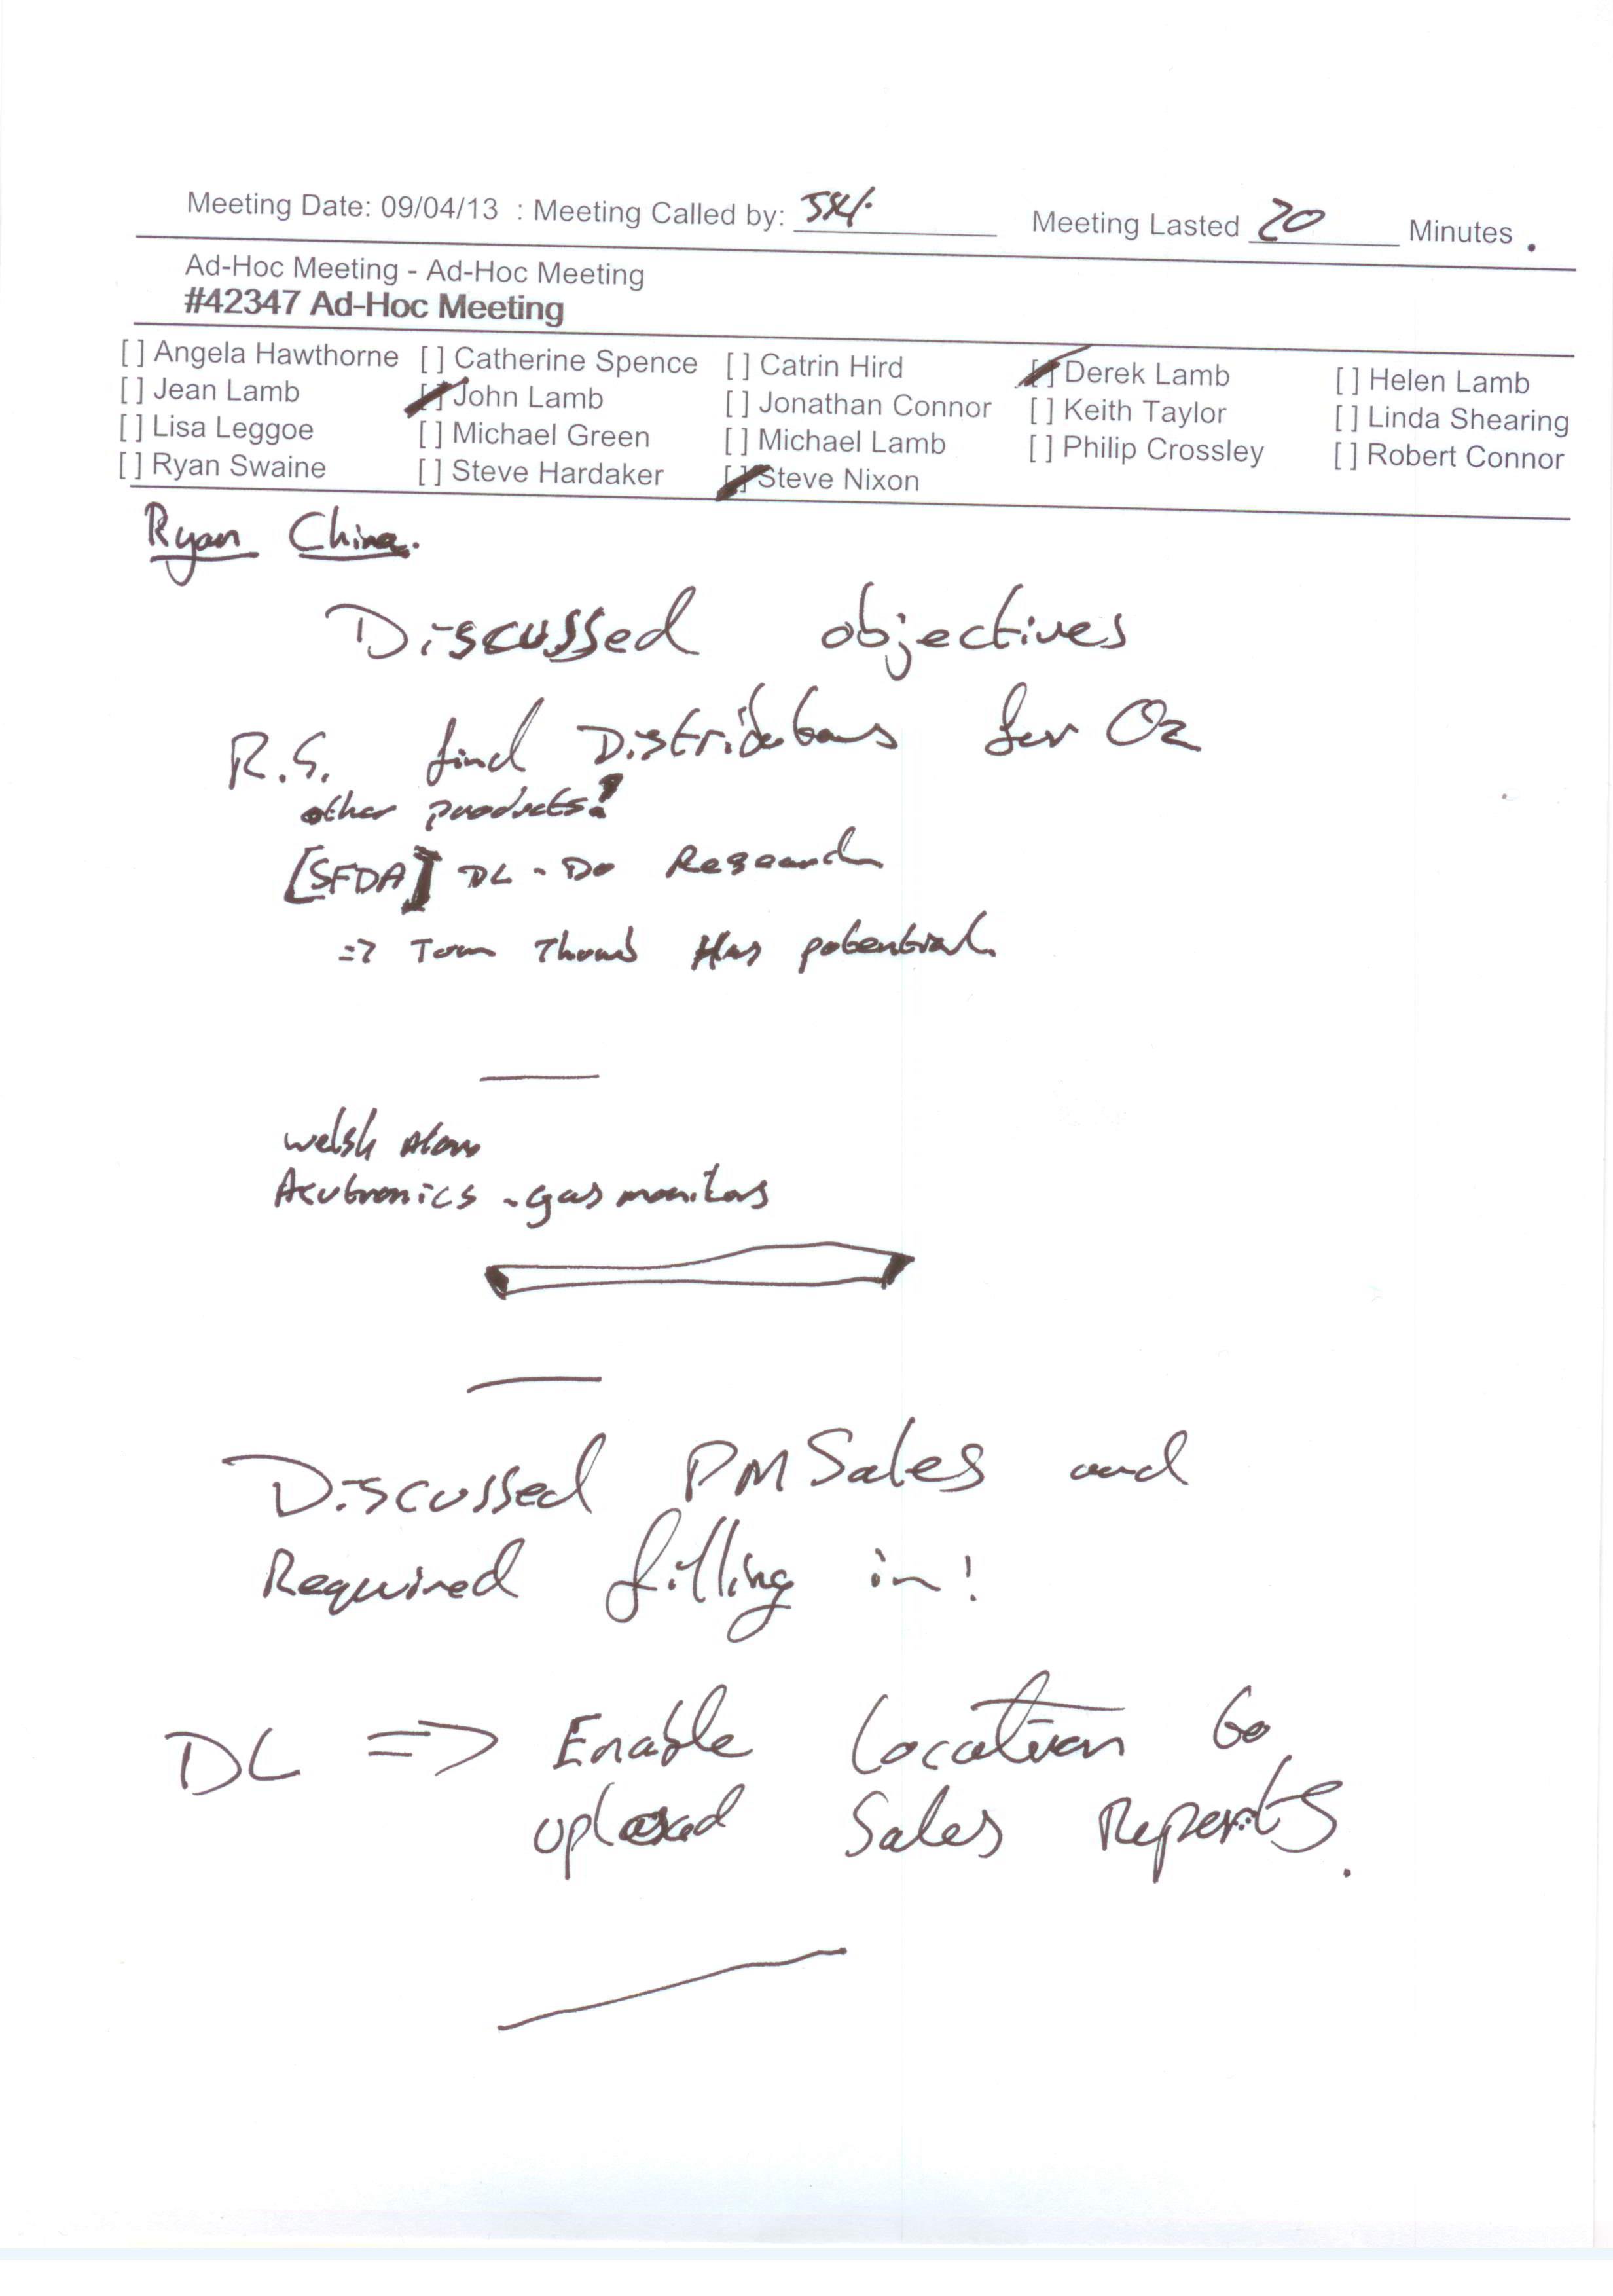 Meeting Date: 09/04/13 : Meeting Called by: Meeting Lasted 20 Minutes .
Ad-Hoc Meeting - Ad-Hoc Meeting
#42347 Ad-Hoc Meeting
[ ] Angela Hawthorne [ ] Catherine Spence [ ] Catrin Hird [ ] Derek Lamb [ ] Helen Lamb
[ ] Jean Lamb [ ] John Lamb [ ] Jonathan Connor [ ] Keith Taylor [ ] Linda Shearing
[ ] Lisa Leggoe [ ] Michael Green [ ] Michael Lamb [ ] Philip Crossley [ ] Robert Connor
[ ] Ryan Swaine [ ] Steve Hardaker [ ] Steve Nixon
Ryan China.
Discussed objectives
R.S. find Distributors for O2
other products?
[SFDA] DL - Do Research
=> Tom Thumb Has potential
Welsh
Acutronics - gas monitors
Discussed PM Sales and
Required filling in!
DL => Enable location to
upload Sales Reports.